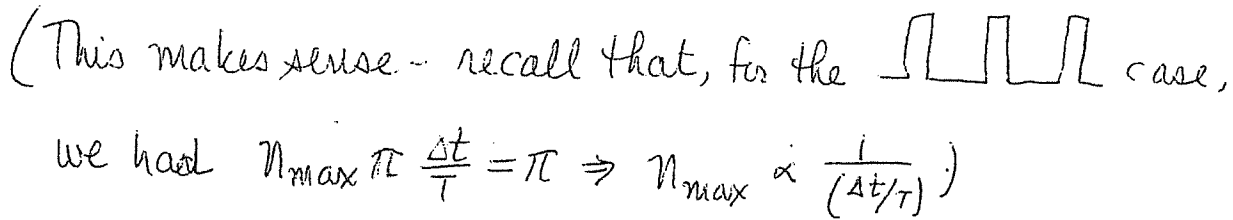 (This makes sense - recall that, for the case,
we had n_max π Δt/T = π ⇒ n_max ∝ 1/(Δt/T))